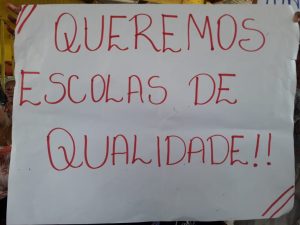 QUEREMOS
ESCOLAS DE
QUALIDADE!!